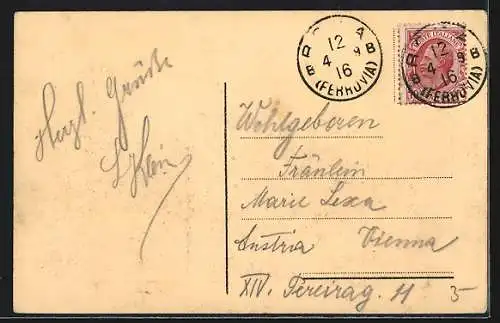 Herzl. Grüße
Klein
12
4
16
B
B
(FERROVIA)
POSTE ITALIANE
12
4
16
B
(FERROVIA)
Wohlgeboren
Fräulein
Marie Lexa
Austria Vienna
XIV. Pereirag. 11
5-